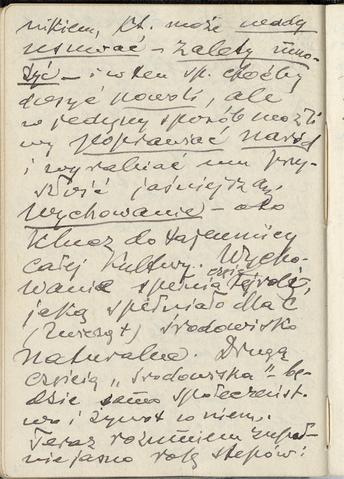 nikiem, kt. może wady
usuwać – zalety mno-
żyć – i w ten sp. choćby
dosyć powoli, ale
w jedyny sposób możli
wy poprawiać naród
i wyrabiać mu przy-
szłość jaśniejszą.
Wychowanie – oto
klucz do tajemnicy
całej kultury. Wycho-
wanie spełnia część tej roli,
jaką spełniało dla
(zwierząt) środowisko
naturalne. Drugą
częścią „środowiska" bę-
dzie samo społeczeńst-
wo i żywot w niem.
Teraz rozumiem zupeł-
nie jasno rolę stepów: